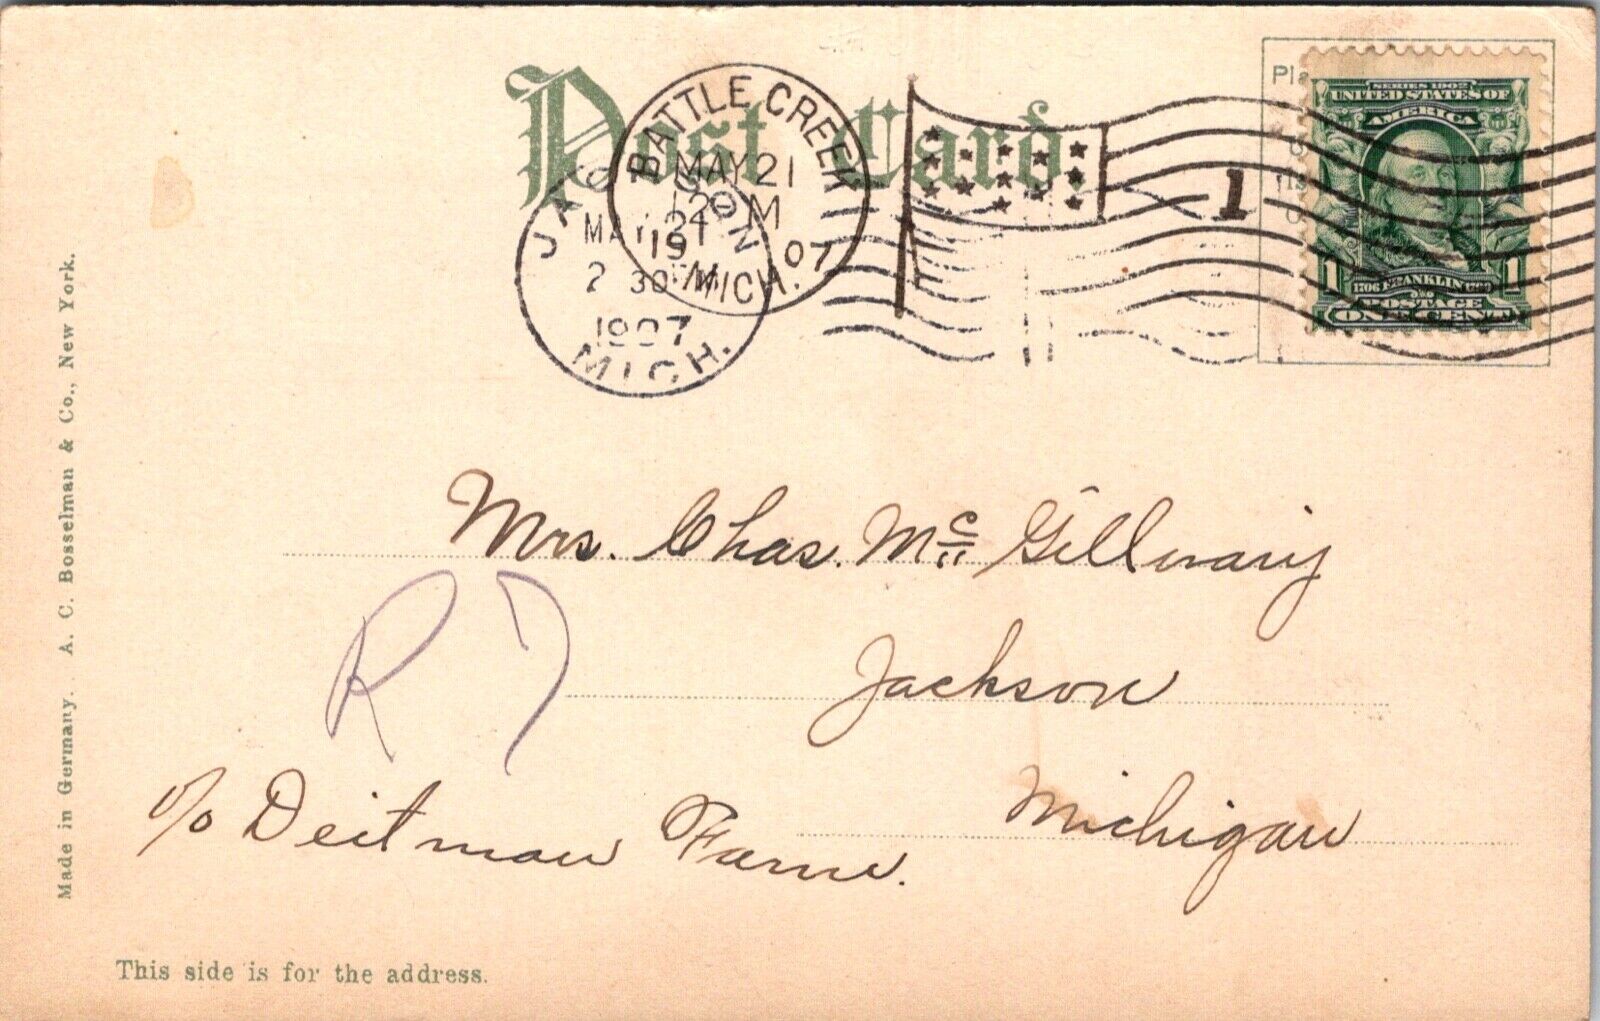 Post Card.
BATTLE CREEK
MAY 21
12 M
19 07
MICH.
JACKSON
MAY 21
2 30 PM
1907
MICH.
1
Pla
SERIES 1902
UNITED STATES OF
AMERICA
1 1
FRANKLIN
POSTAGE
ONE CENT
Mrs. Chas. Mc Gillvrary
R 7
Jackson
Michigan
c/o Deitman Farm.
Made in Germany. A. C. Bosselman & Co., New York.
This side is for the address.